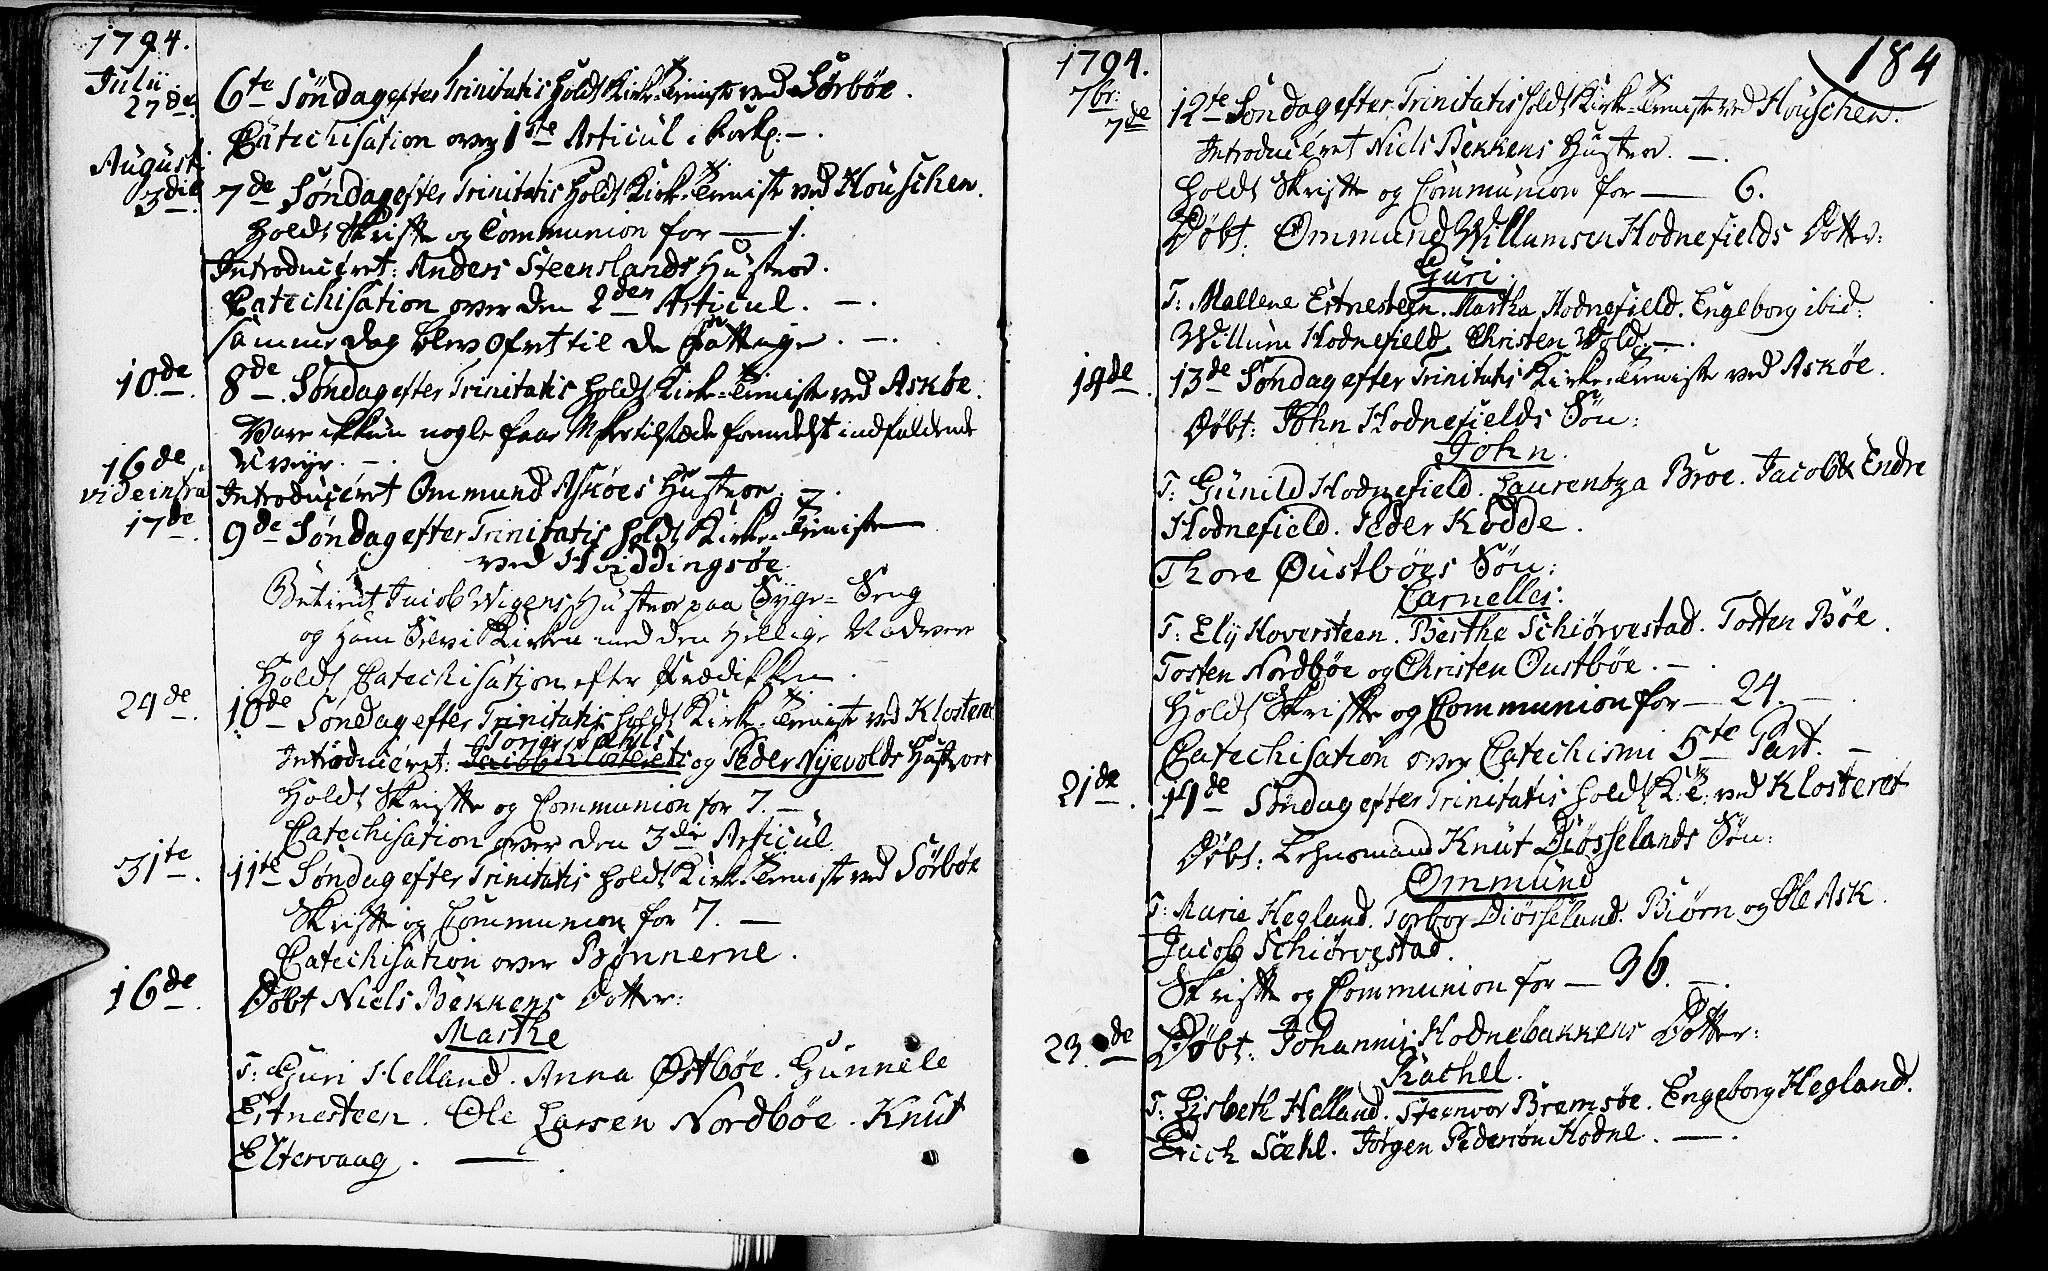 1794.
Julii
27de. 6te Söndag efter Trinitatis holdt Kirke-Tieniste ved Sörböe.
Catechisation over 1ste Articul i
August
3die. 7de Söndag efter Trinitatis holdt Kirke-Tieniste ved Houschen.
Holdt Skrifte og Communion for — 1.
Introduceret: Anders Steenslands Hustroe.
Catechisation over den 2den Articul. —.
samme dag blev Ofret til de Fattige. —.
10de. 8de. Söndag efter Trinitatis holdt Kirke-Tieniste ved Askøe.
Vare ikkun nogle faae Msker tilstæde formedelst indfaldende
Uveyr. —.
16de
vide infra Introduceret Ommund Askøes Hustroe. —.
17de. 9de Söndag efter Trinitatis holdt Kirke-Tieniste
ved Hviddingsøe.
Betient Jacob Wigens Hustroe paa Syge-Seng
og Ham Selv i Kirken med den Hellige Nadvere
Holdt Catechisation efter Prædikken.
24de. 10de Söndag efter Trinitatis holdt Kirke-Tieniste ved Klosteret
Torjer Sæhls
Introduceret: Jacob Klosterets og Peder Nyevolds Hustroer
Holdt Skrifte og Communion for 7. —
Catechisation over den 3die Articul.
31te. 11te Söndag efter Trinitatis holdt Kirke-Tieniste ved Sörbøe
Skrifte og Communion for 7. —
Catechisation over Bønnerne.
16de. Døbt Niels Bekkens Dotter:
Marthe
T: Guri Helland. Anna Østbøe. Gunnele
Eitnesteen. Ole Larsen Nordbøe. Knut
Eltervaag. —.
1794. 184
7br:
7de 12te Söndag efter Trinitatis holdt Kirke-Tieniste ved Houschen.
Introduceret Niels Bekkens Hustroe. —.
Holdt Skrifte og Communion for — 6.
Döbt. Ommund Willumsen Hodnefields Dotter:
Guri.
T: Mallene Eitnesteen. Martha Hodnefield. Engeborg ibid:
Willum Hodnefield. Christen Vold. —.
14de. 13de Söndag efter Trinitatis Kirke-Tieniste ved Askøe.
Döbt: John Hodnefields Sön:
John.
T: Gunild Hodnefield. Laurentza Broe. Jacob & Endre
Hodnefield. Peder Kodde.
Thore Øustbøes Søn:
Carnelles.
T: Elij Koversteen. Berthe Schiørvestad. Tosten Bøe.
Tosten Nordbøe og Christen Oustbøe. —.
Holdt Skrifte og Communion for — 24. —.
Catechisation over Catechismi 5te Part. —
21de. 14de Söndag efter Trinitatis holdt K: T: ved Klosteret
Döbt: Lehnsmand Knut Diøsselands Sön:
Ommund
T: Marie Hegland. Torbor Diøsseland. Biørn og Ole Ask.
Jacob Schiørvestad.
Skrifte og Communion for — 36. —.
23de Döbt. Johannis Hodnebakkens Dotter:
Rachel.
T: Lisbeth Helland. Steenvor Bremsøe. Engeborg Hegland.
Erich Sæhl. Jørgen Pedersøn Hodne. —.